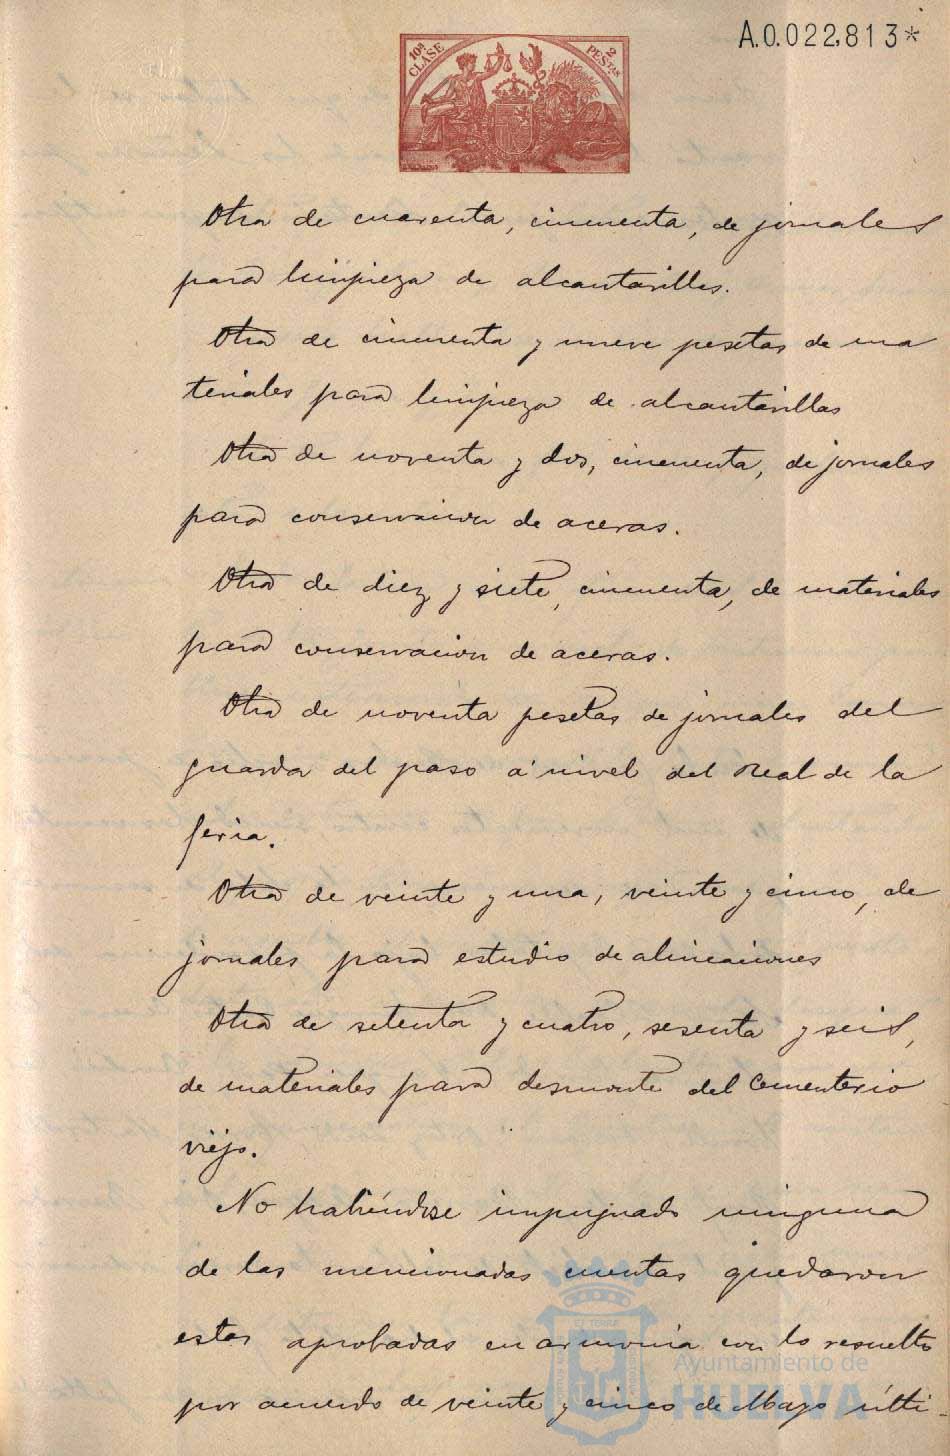 10ª CLASE
2 PESTAS
A.0.022,813*
Otra de cuarenta, cincuenta, de jornales
para limpieza de alcantarillas.
Otra de cincuenta y nueve pesetas de ma
teriales para limpieza de alcantarillas
Otra de noventa y dos, cincuenta, de jornales
para conservacion de aceras.
Otra de diez y siete, cincuenta, de materiales
para conservacion de aceras.
Otra de noventa pesetas de jornales del
guarda del paso á nivel del Real de la
feria.
Otra de veinte y una, veinte y cinco, de
jornales para estudio de alineaciones
Otra de setenta y cuatro, sesenta y seis,
de materiales para desmonte del Cementerio
viejo.
No habiéndose impugnado ninguna
de las mencionadas cuentas quedaron
estas aprobadas en armonia con lo resuelto
por acuerdo de veinte y cinco de Mayo últi-
Ayuntamiento de
HUELVA